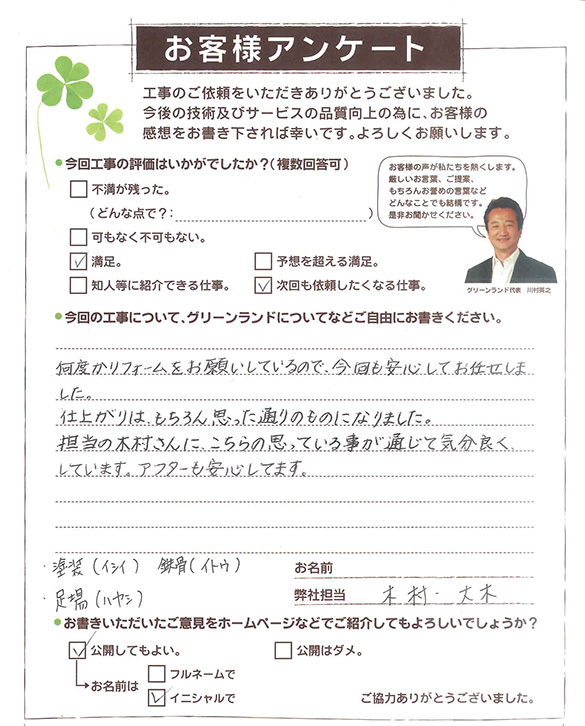 お客様アンケート
工事のご依頼をいただきありがとうございました。
今後の技術及びサービスの品質向上の為に、お客様の
感想をお書き下されば幸いです。よろしくお願いします。
今回工事の評価はいかがでしたか？（複数回答可）
不満が残った。
（どんな点で？：　）
可もなく不可もない。
満足。
予想を超える満足。
知人等に紹介できる仕事。
次回も依頼したくなる仕事。
お客様の声が私たちを熱くします。
厳しいお言葉、ご提案、
もちろんお誉めの言葉など
どんなことでも結構です。
是非お聞かせください。
グリーンランド代表　川村英之
今回の工事について、グリーンランドについてなどご自由にお書きください。
何度かリフォームをお願いしているので、今回も安心してお任せしま
した。
仕上がりは、もちろん思った通りのものになりました。
担当の木村さんに、こちらの思っている事が通じて気分良く、
しています。アフターも安心してます。
・塗装（イシイ）　鉄骨（イトウ）
・足場（ハヤシ）
お名前
弊社担当　木村・大木
お書きいただいたご意見をホームページなどでご紹介してもよろしいでしょうか？
公開してもよい。
公開はダメ。
お名前は
フルネームで
イニシャルで
ご協力ありがとうございました。